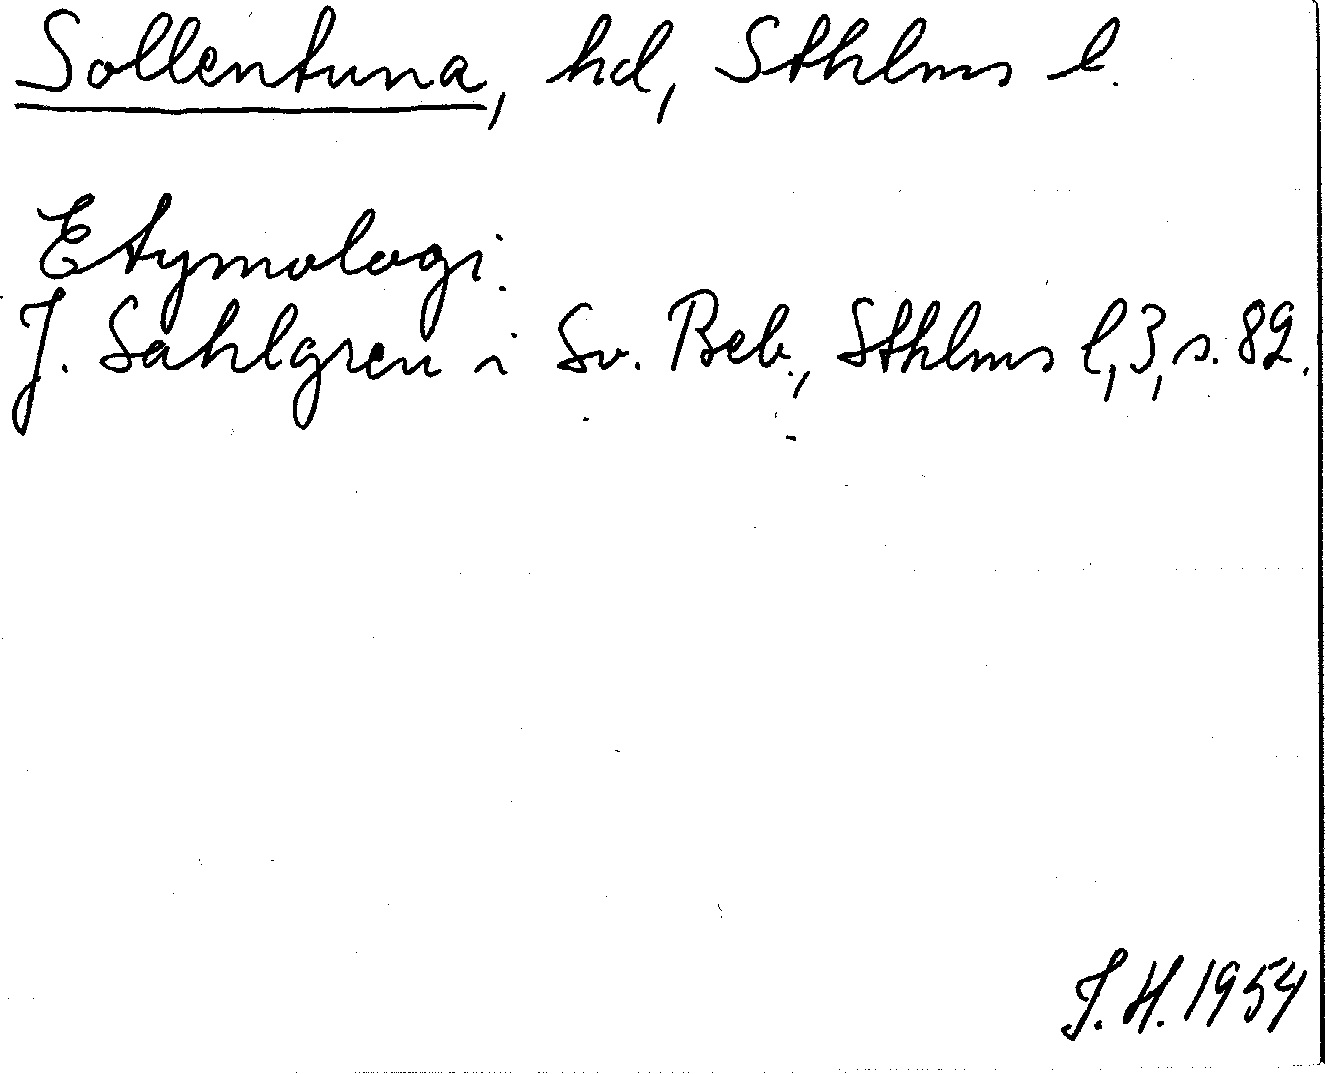 Sollentuna, hd, Sthlms l.
Etymologi.
J. Sahlgren i Sv. Beb., Sthlms l, 3, s. 82.
J.H. 1954